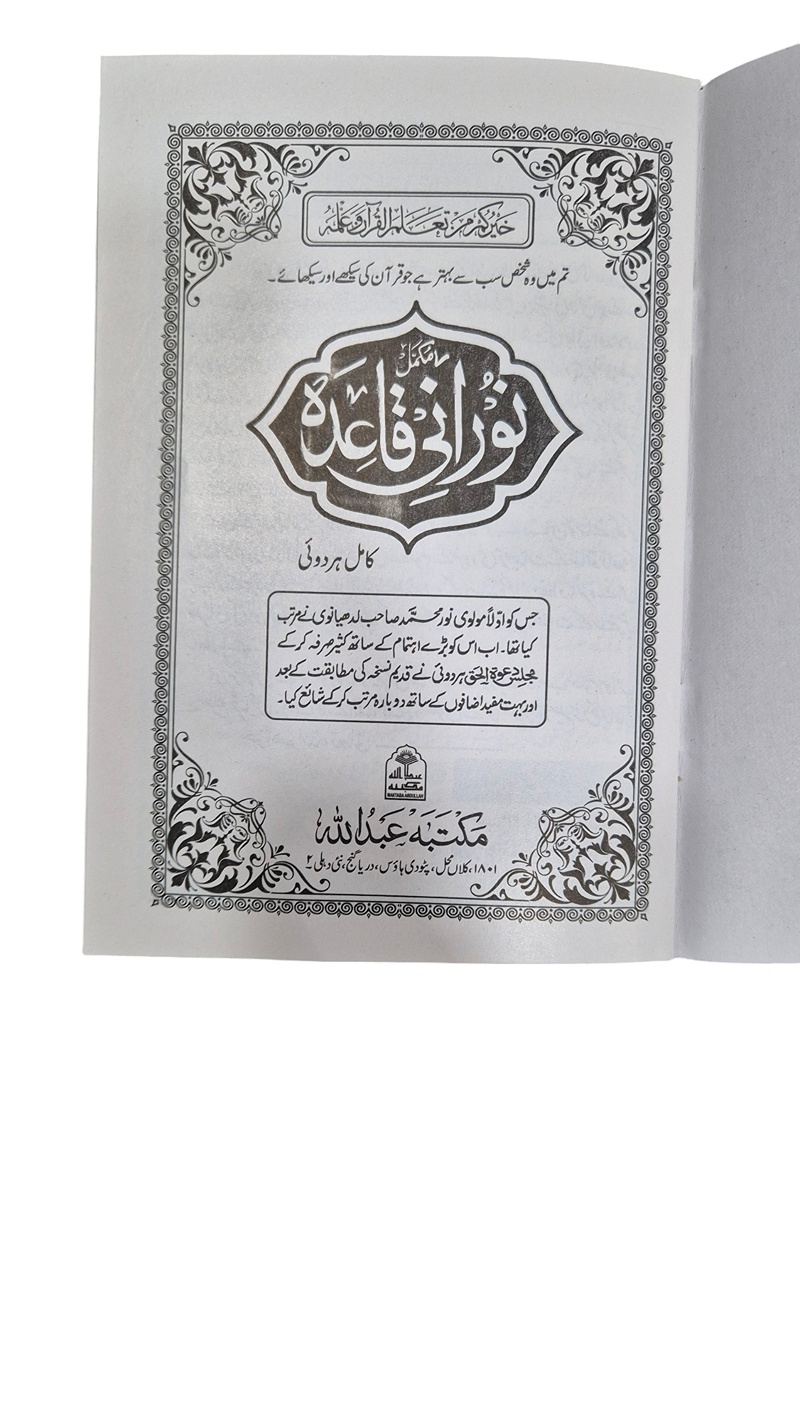 خَيْرُكُمْ مَنْ تَعَلَّمَ الْقُرْآنَ وَعَلَّمَهُ
تم میں وہ شخص سب سے بہتر ہے جو قرآن کی سیکھے اور سیکھائے۔
مکمل
نُورانی قَاعِدَہ
کامل ہردوئی
جس کو اوّلاً مولوی نور محمّد صاحب لدھیانوی نے مرتب
کیا تھا۔ اب اس کو بڑے اہتمام کے ساتھ کثیر صرفہ کر کے
مجلس دعوۃ الحق ہردوئی نے قدیم نسخہ کی مطابقت کے بعد
اور بہت مفید اضافوں کے ساتھ دوبارہ مرتب کر کے شائع کیا۔
عبد اللہ
مکتبہ
MAKTABA ABDULLAH
مَکتَبَہ عَبدُاللّٰہ
۱۸۰۱، کلاں محل، پٹودی ہاؤس، دریا گنج، نئی دہلی ۲